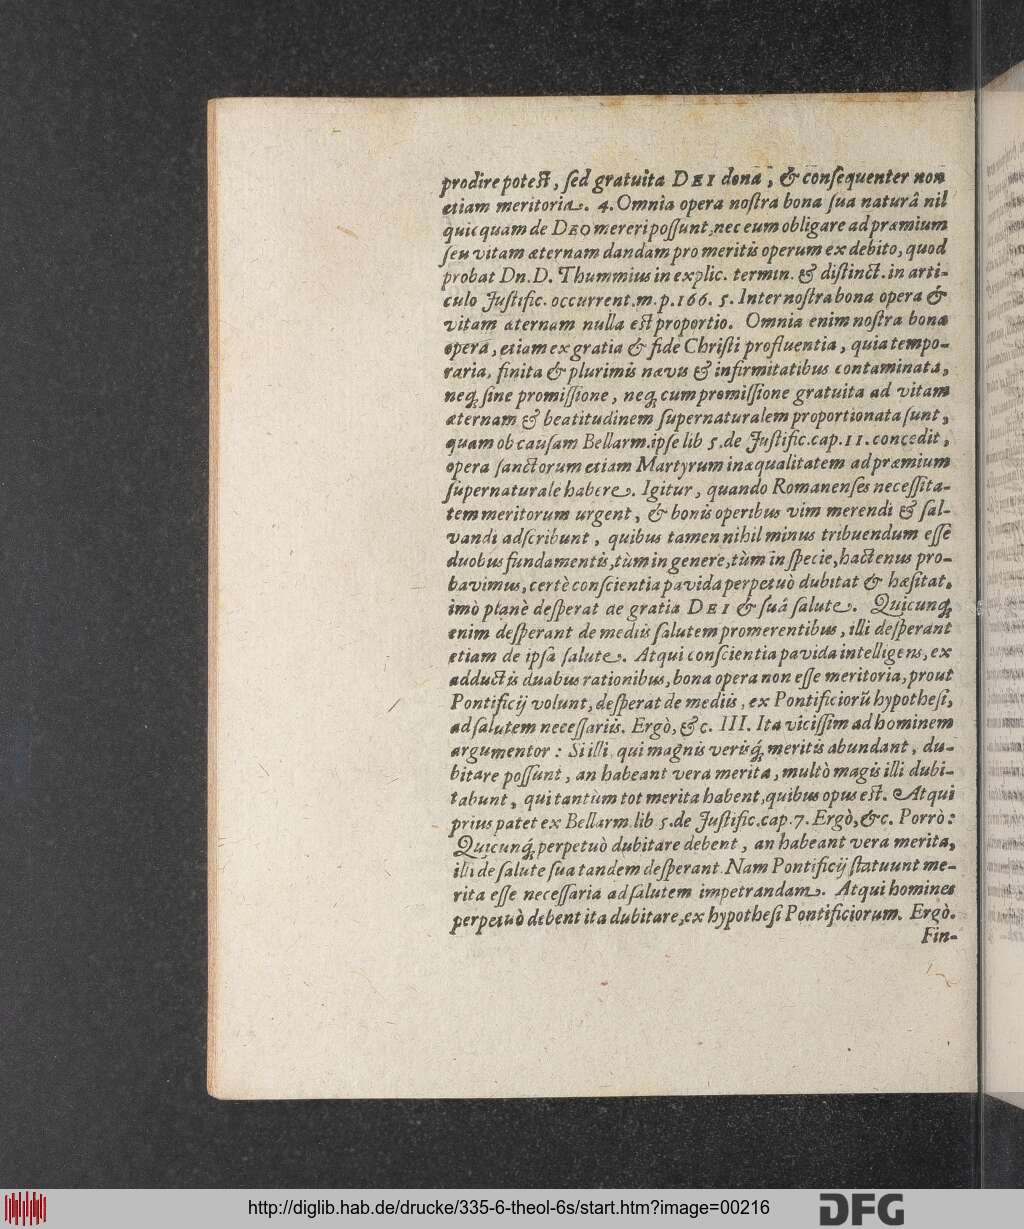 prodire potest, sed gratuita DEI dona, & consequenter non
etiam meritoria. 4. Omnia opera nostra bona sua naturâ nil
quicquam de DEO mereri possunt, nec eum obligare ad præmium
seu vitam æternam dandam pro meritis operum ex debito, quod
probat Dn. D. Thummius in explic. termin. & distinct. in arti-
culo Justific. occurrent. m. p. 166. 5. Inter nostra bona opera &
vitam æternam nulla est proportio. Omnia enim nostra bona
opera, etiam ex gratia & fide Christi profluentia, quia tempo-
raria, finita & plurimis nævis & infirmitatibus contaminata,
neq; sine promissione, neq; cum promissione gratuita ad vitam
æternam & beatitudinem supernaturalem proportionata sunt,
quam ob causam Bellarm. ipse lib 5. de Justific. cap. 11. concedit,
opera sanctorum etiam Martyrum inæqualitatem ad præmium
supernaturale habere. Igitur, quando Romanenses necessita-
tem meritorum urgent, & bonis operibus vim merendi & sal-
vandi adscribunt, quibus tamen nihil minus tribuendum esse
duobus fundamentis, tùm in genere, tùm in specie, hactenus pro-
bavimus, certè conscientia pavida perpetuò dubitat & hæsitat,
imò planè desperat de gratia DEI & suâ salute. Quicunq;
enim desperant de mediis salutem promerentibus, illi desperant
etiam de ipsa salute. Atqui conscientia pavida intelligens, ex
adductis duabus rationibus, bona opera non esse meritoria, prout
Pontificij volunt, desperat de mediis, ex Pontificiorũ hypothesi,
ad salutem necessariis. Ergò, &c. III. Ita vicissim ad hominem
argumentor: Si illi, qui magnis verisq́; meritis abundant, du-
bitare possunt, an habeant vera merita, multò magis illi dubi-
tabunt, qui tantùm tot merita habent, quibus opus est. Atqui
prius patet ex Bellarm. lib 5. de Justific. cap. 7. Ergò, &c. Porrò:
Quicunq́; perpetuò dubitare debent, an habeant vera merita,
illi de salute sua tandem desperant. Nam Pontificij statuunt me-
rita esse necessaria ad salutem impetrandam. Atqui homines
perpetuò debent ita dubitare, ex hypothesi Pontificiorum. Ergò.
Fin-
http://diglib.hab.de/drucke/335-6-theol-6s/start.htm?image=00216
DFG